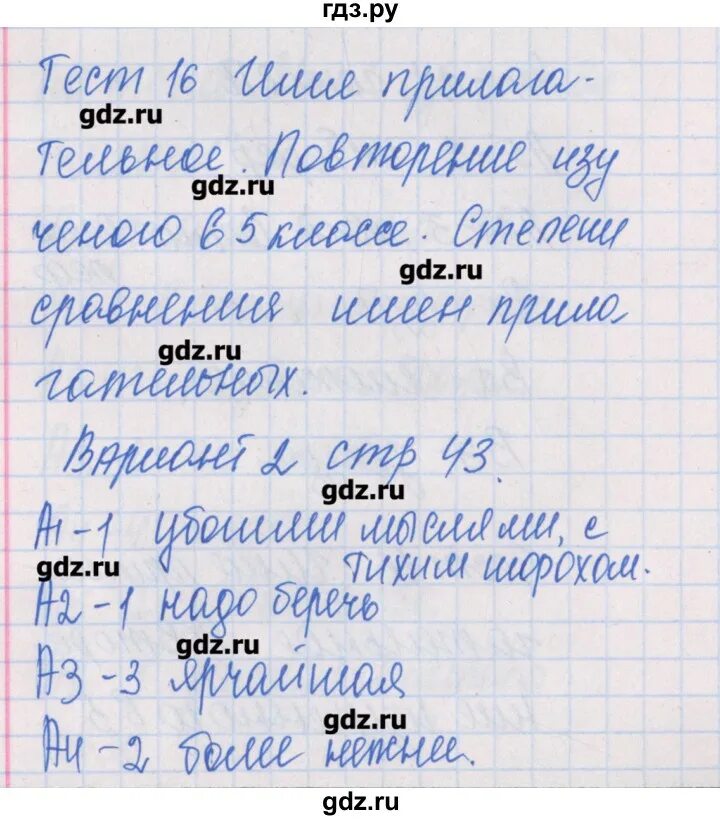 гдз.ру
Тест 16 Имя прилага-
gdz.ru
тельное. Повторение изу
gdz.ru
ченого в 5 классе. Степени
gdz.ru
сравнения имен прила
gdz.ru
гательных.
Вариант 2 стр 43.
gdz.ru
А1-1 убогими мыслями, с
gdz.ru
тихим шорохом.
А2-1 надо беречь
gdz.ru
А3-3 ярчайшая
gdz.ru
А4-2 более нежнее.
gdz.ru